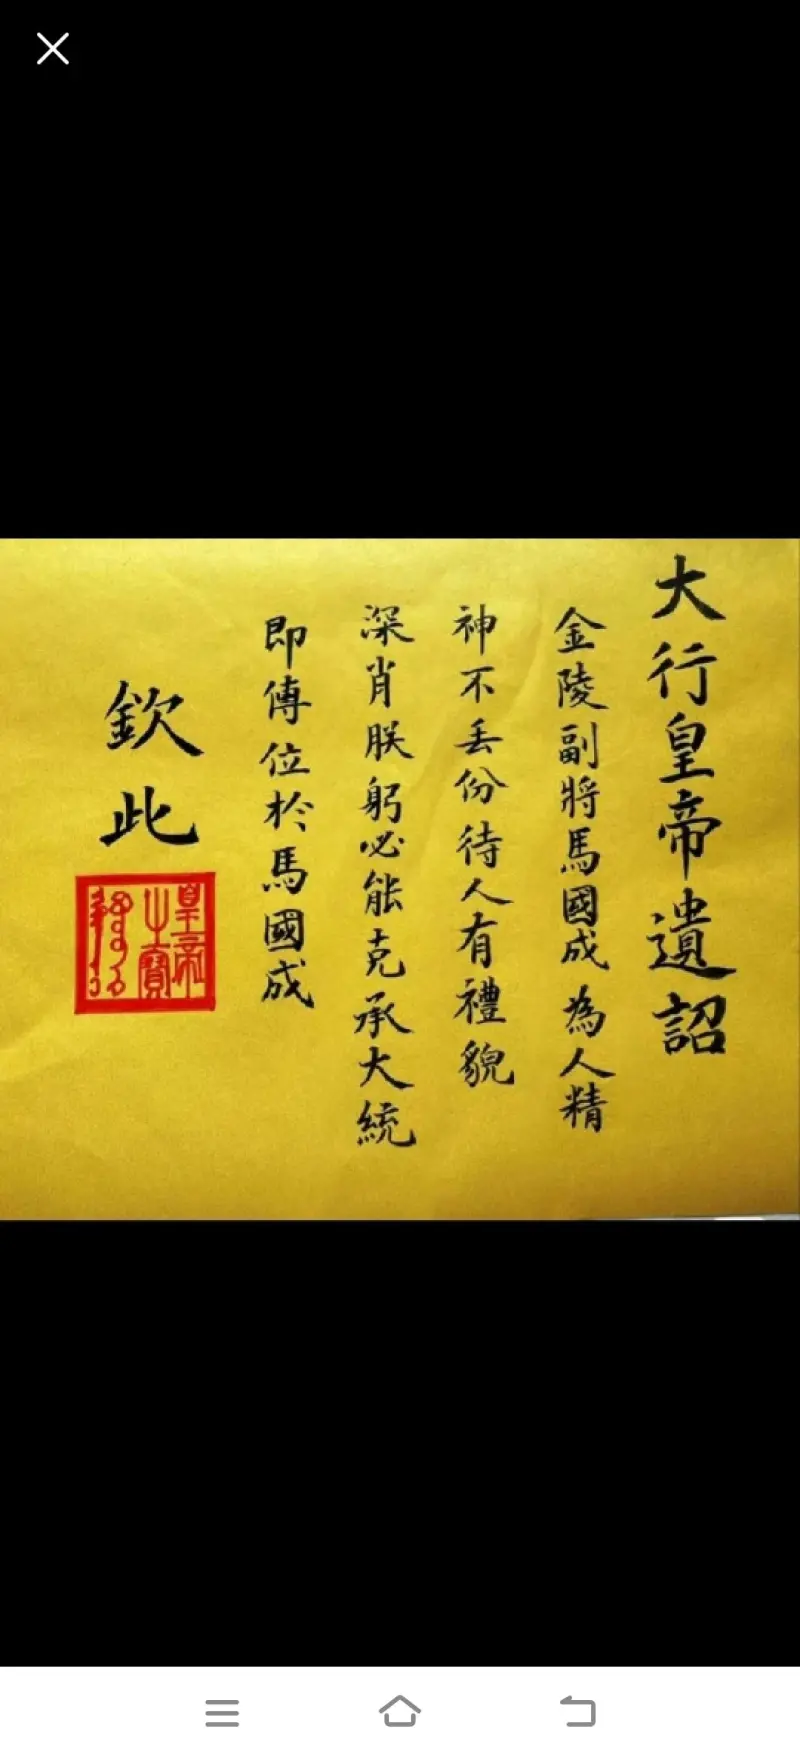 大行皇帝遺詔
金陵副將馬國成為人精
神不丢份待人有禮貌
深肖朕躬必能克承大統
即傳位於馬國成
欽此
皇帝
之寶